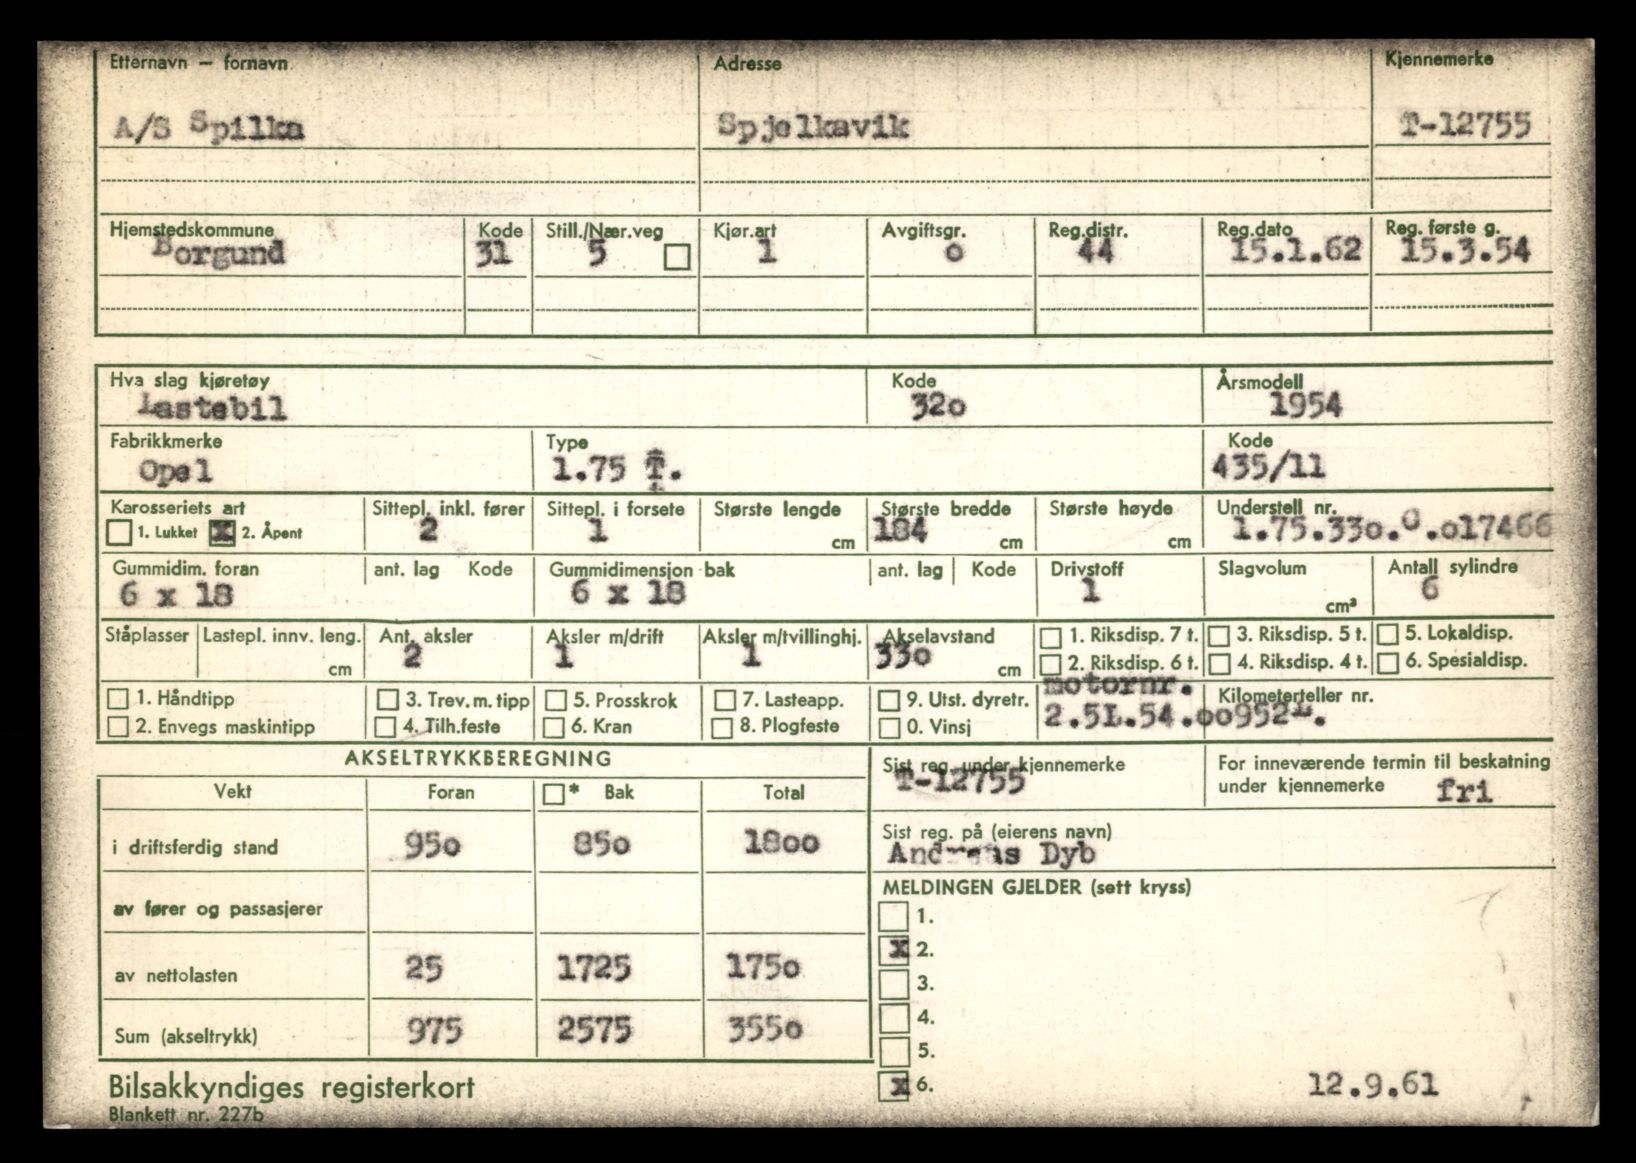 Etternavn – fornavn Adresse Kjennemerke
A/S Spilka Spjelkavik T-12755
Hjemstedskommune Kode Still./Nær.veg Kjør.art Avgiftsgr. Reg.distr. Reg.dato Reg. første g.
Borgund 31 5 1 o 44 15.1.62 15.3.54
Hva slag kjøretøy Kode Årsmodell
Lastebil 32o 1954
Fabrikkmerke Type Kode
Opel 1.75 T. 435/11
Karosseriets art Sittepl. inkl. fører Sittepl. i forsete Største lengde Største bredde Største høyde Understell nr.
1. Lukket X 2. Åpent 2 1 cm 184 cm cm 1.75.33o.O.o17466
Gummidim. foran ant. lag Kode Gummidimensjon bak ant. lag Kode Drivstoff Slagvolum Antall sylindre
6 x 18 6 x 18 1 cm³ 6
Ståplasser Lastepl. innv. leng. Ant. aksler Aksler m/drift Aksler m/tvillinghj. Akselavstand 1. Riksdisp. 7 t. 3. Riksdisp. 5 t. 5. Lokaldisp.
cm 2 1 1 33o cm 2. Riksdisp. 6 t. 4. Riksdisp. 4 t. 6. Spesialdisp.
1. Håndtipp 3. Trev.m.tipp 5. Prosskrok 7. Lasteapp. 9. Utst. dyretr. motornr. Kilometerteller nr.
2. Envegs maskintipp 4. Tilh.feste 6. Kran 8. Plogfeste 0. Vinsj 2.5L.54.oo952L.
AKSELTRYKKBEREGNING Sist reg. under kjennemerke For inneværende termin til beskatning
T-12755 under kjennemerke fri
Vekt Foran * Bak Total
Sist reg. på (eierens navn)
i driftsferdig stand 95o 85o 18oo Andreas Dyb
MELDINGEN GJELDER (sett kryss)
av fører og passasjerer 1.
X 2.
av nettolasten 25 1725 175o 3.
4.
Sum (akseltrykk) 975 2575 355o 5.
Bilsakkyndiges registerkort X 6. 12.9.61
Blankett nr. 227b